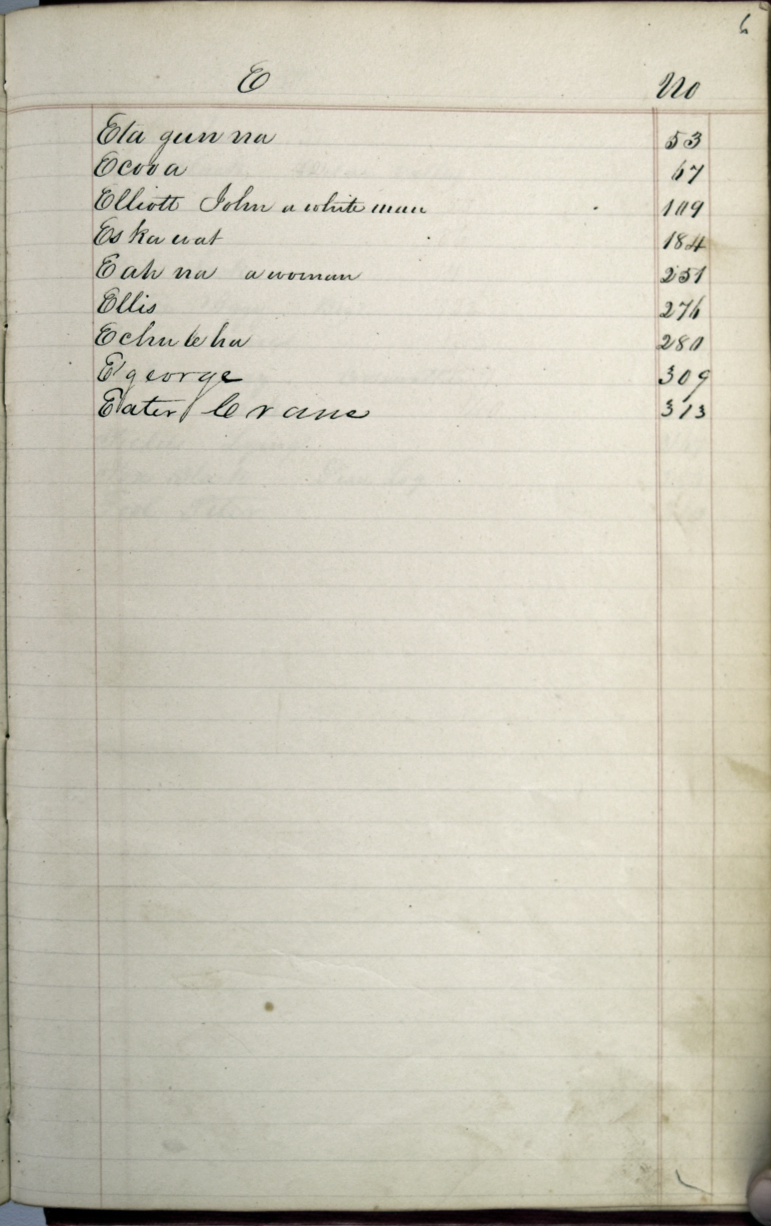 6
E No
Eta gun na 53
Ecooa 67
Elliott John a white man 109
Es ka wat 184
E ah na a woman 251
Ellis 276
Echu le ha 280
E george 309
Eater Crane 313